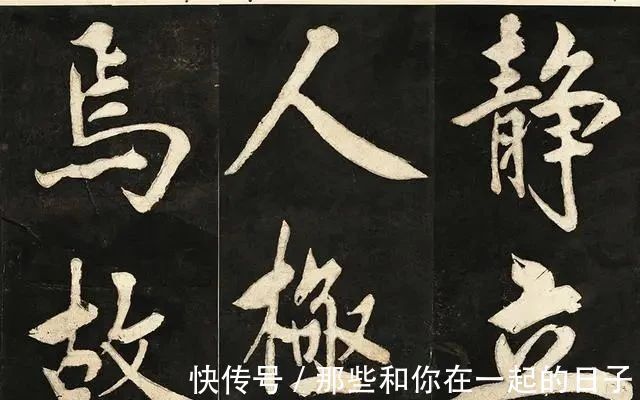 静立
人極
焉故
快传号 / 那些和你在一起的日子